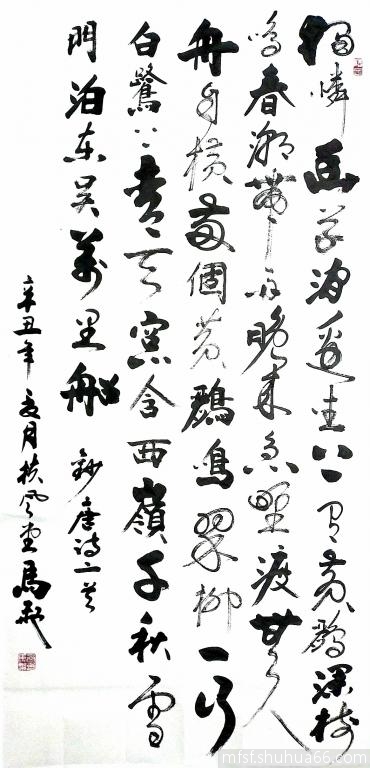 獨憐幽草澗邊生上有黃鸝深樹
鳴春潮帶雨晚來急野渡無人
舟自橫兩個黃鸝鳴翠柳一行
白鷺上青天窗含西嶺千秋雪
門泊東吳萬里船
鈔唐詩二首
辛丑年夏月扶風堂馬
mfsf.shuhua66.com